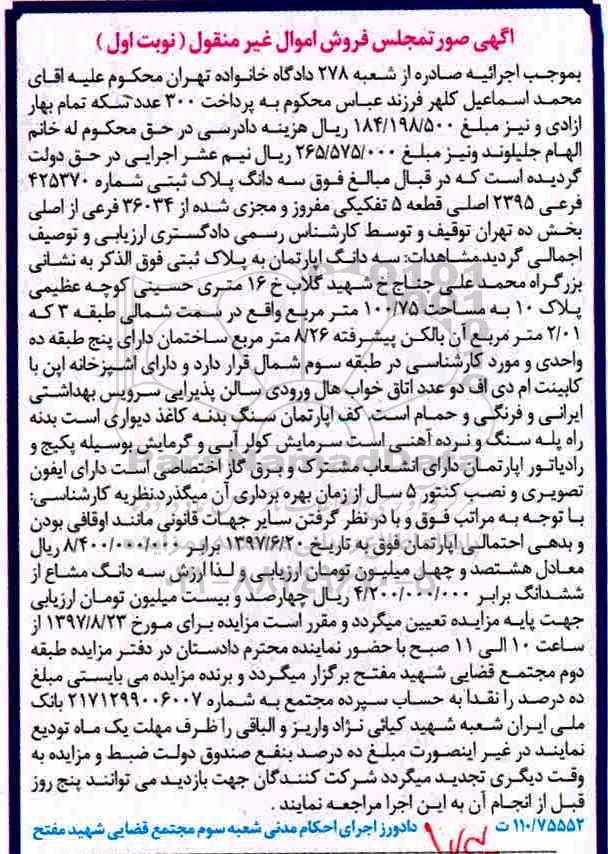 آگهی صورتمجلس فروش اموال غیر منقول ( نوبت اول )
بموجب اجرائیه صادره از شعبه ۲۷۸ دادگاه خانواده تهران محکوم علیه اقای
محمد اسماعیل کلهر فرزند عباس محکوم به پرداخت ۳۰۰ عدد سکه تمام بهار
ازادی و نیز مبلغ ۱۸۴/۱۹۸/۵۰۰ ریال هزینه دادرسی در حق محکوم له خانم
الهام جلیلوند ونیز مبلغ ۲۶۵/۵۷۵/۰۰۰ ریال نیم عشر اجرایی در حق دولت
گردیده است که در قبال مبالغ فوق سه دانگ پلاک ثبتی شماره ۴۲۵۳۷۰
فرعی ۲۳۹۵ اصلی قطعه ۵ تفکیکی مفروز و مجزی شده از ۳۶۰۳۴ فرعی از اصلی
بخش ده تهران توقیف و توسط کارشناس رسمی دادگستری ارزیابی و توصیف
اجمالی گردید.مشاهدات: سه دانگ اپارتمان به پلاک ثبتی فوق الذکر به نشانی
بزرگراه محمد علی جناح خ شهید گلاب خ ۱۶ متری حسینی کوچه عظیمی
پلاک ۱۰ به مساحت ۱۰۰/۷۵ متر مربع واقع در سمت شمالی طبقه ۳ که
۲/۰۱ متر مربع آن بالکن پیشرفته ۸/۲۶ متر مربع ساختمان دارای پنج طبقه ده
واحدی و مورد کارشناسی در طبقه سوم شمال قرار دارد و دارای اشپزخانه اپن با
کابینت ام دی اف دو عدد اتاق خواب هال ورودی سالن پذیرایی سرویس بهداشتی
ایرانی و فرنگی و حمام است. کف اپارتمان سنگ بدنه کاغذ دیواری است بدنه
راه پله سنگ و نرده آهنی است سرمایش کولر آبی و گرمایش بوسیله پکیج و
رادیاتور اپارتمان دارای انشعاب مشترک و برق گاز اختصاصی است دارای ایفون
تصویری و نصب کنتور ۵ سال از زمان بهره برداری آن میگذرد.نظریه کارشناسی:
با توجه به مراتب فوق و با در نظر گرفتن سایر جهات قانونی مانند اوقافی بودن
و بدهی احتمالی اپارتمان فوق به تاریخ ۱۳۹۷/۶/۲۰ برابر ۸/۴۰۰/۰۰۰/۰۰۰ ریال
معادل هشتصد و چهل میلیون تومان ارزیابی و لذا ارزش سه دانگ مشاع از
ششدانگ برابر ۴/۲۰۰/۰۰۰/۰۰۰ ریال چهارصد و بیست میلیون تومان ارزیابی
جهت پایه مزایده تعیین میگردد و مقرر است مزایده برای مورخ ۱۳۹۷/۸/۲۳ از
ساعت ۱۰ الی ۱۱ صبح با حضور نماینده محترم دادستان در دفتر مزایده طبقه
دوم مجتمع قضایی شهید مفتح برگزار میگردد و برنده مزایده می بایستی مبلغ
ده درصد را نقدا به حساب سپرده مجتمع به شماره ۲۱۷۱۲۹۹۰۰۶۰۰۷ بانک
ملی ایران شعبه شهید کیائی نژاد واریز و الباقی را ظرف مهلت یک ماه تودیع
نمایند در غیر اینصورت مبلغ ده درصد بنفع صندوق دولت ضبط و مزایده به
وقت دیگری تجدید میگردد شرکت کنندگان جهت بازدید می توانند پنج روز
قبل از انجام آن به این اجرا مراجعه نمایند .
۱۱۰/۷۵۵۵۲ ت دادورز اجرای احکام مدنی شعبه سوم مجتمع قضایی شهید مفتح